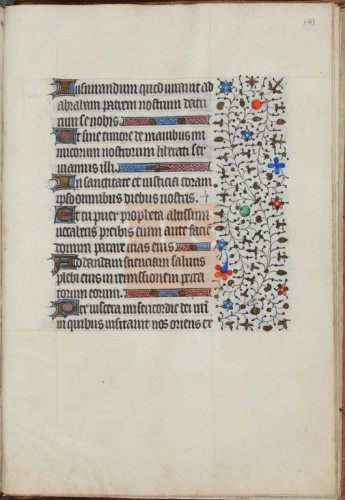 Iusiurandum quod iurauit ad
abraham patrem nostrum datu
rum se nobis.
Ut sine timore de manibus ini
micorum nostrorum liberati ser
uiamus illi.
In sanctitate et iusticia coram
ipso omnibus diebus nostris.
Et tu puer propheta altissimi
uocaberis preibis enim ante facie
domini parare uias eius.
Ad dandam scienciam salutis
plebi eius in remissionem pecca
torum eorum.
Per uiscera misericordie dei nri
in quibus uisitauit nos oriens ex